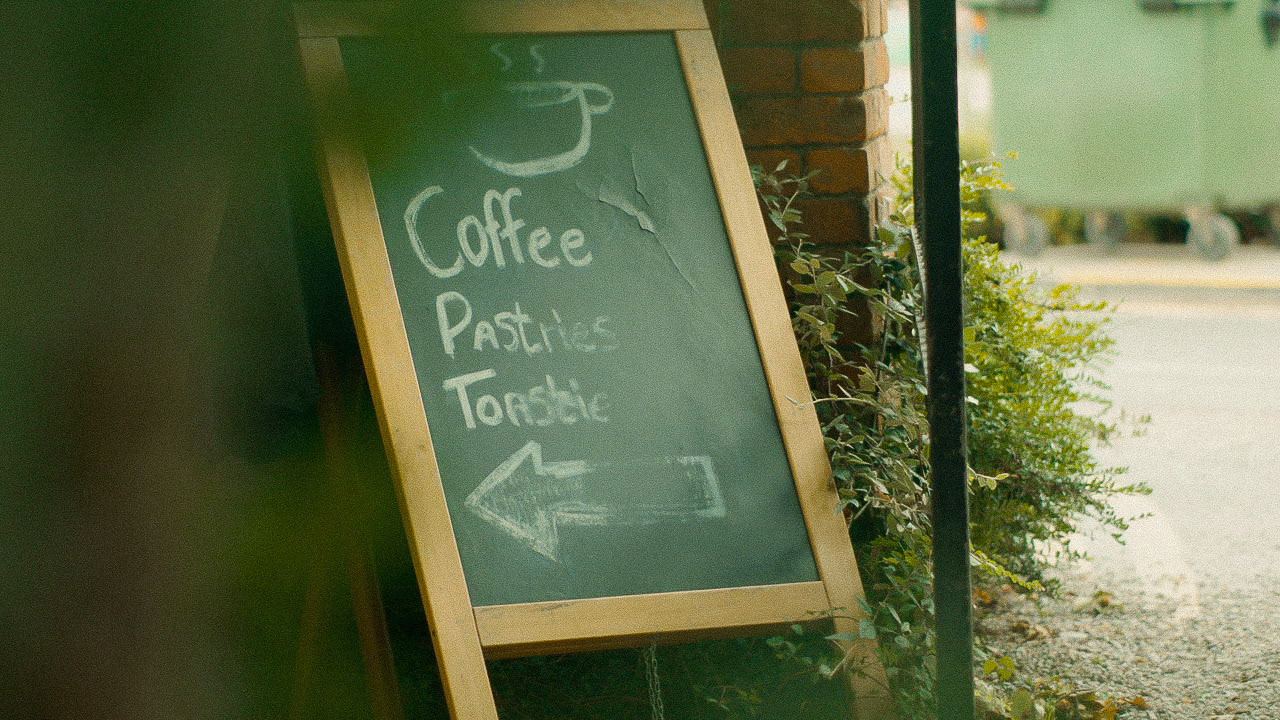 Coffee
Pastries
Toastie